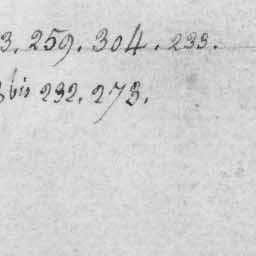 3. 259. 304. 233.
3 bis 232. 273.